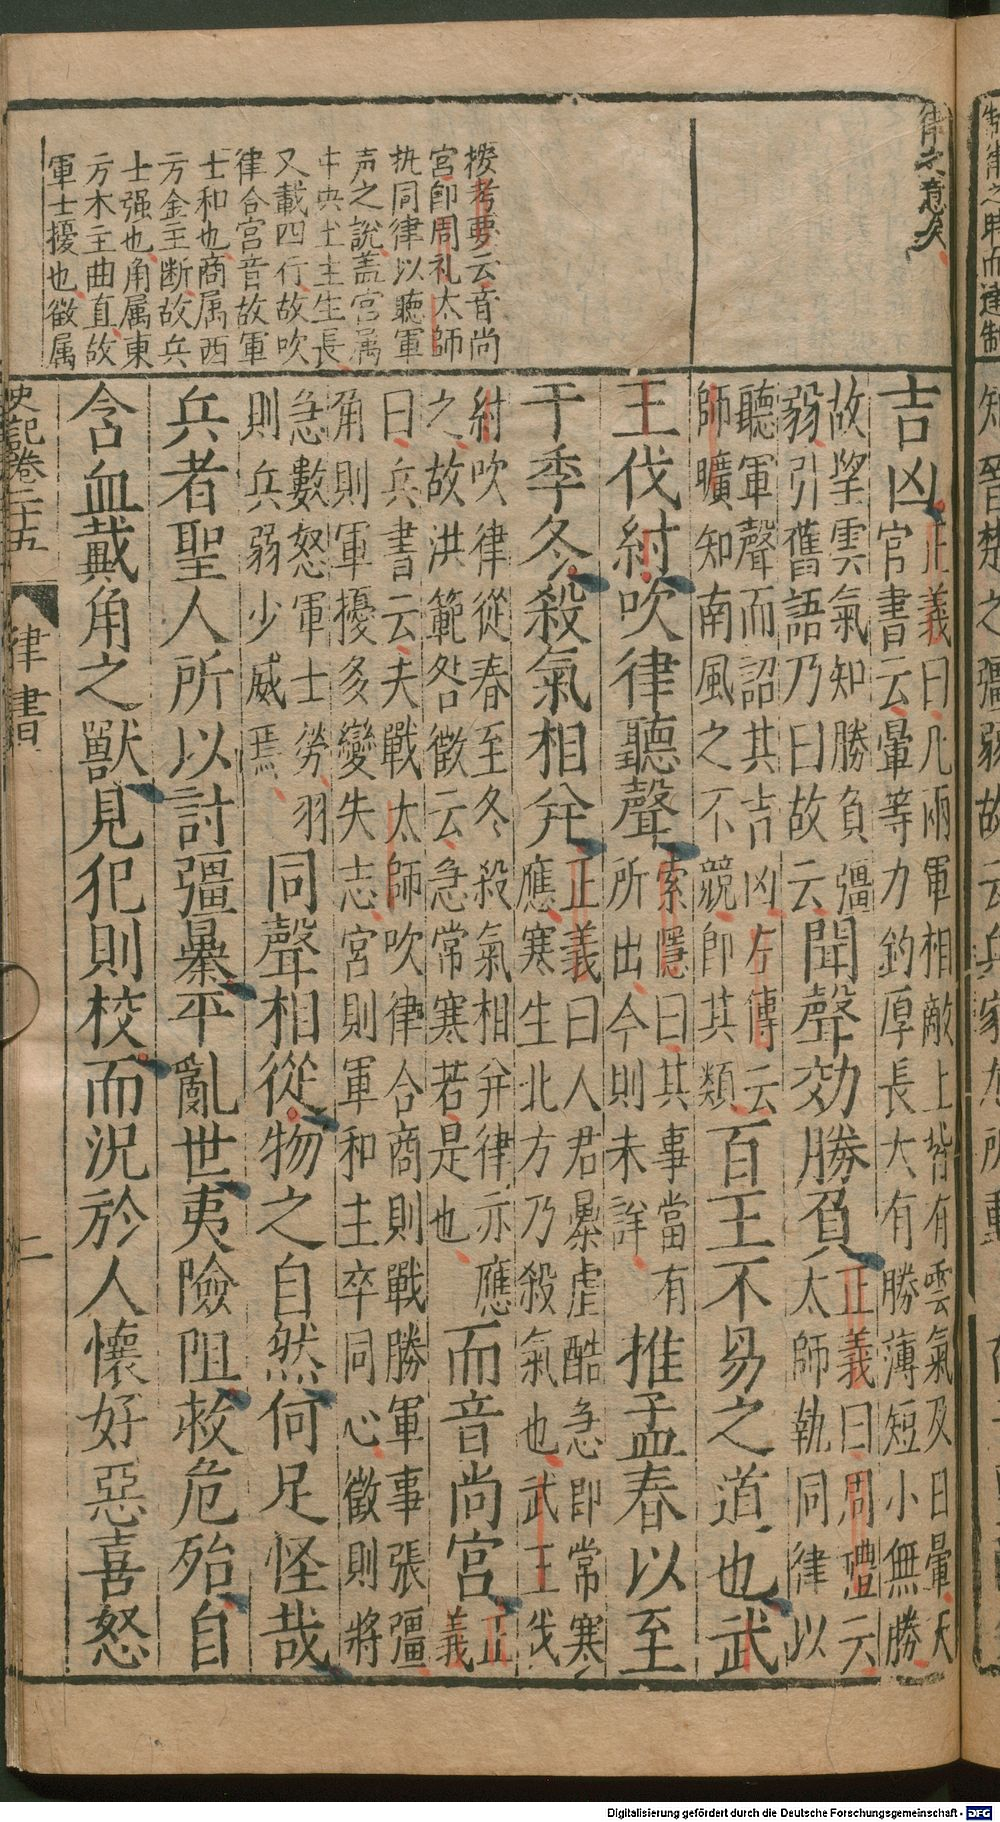 律之意矣
按考要云音尚
宮卽周礼太師
执同律以聽軍
声之說盖宮属
中央土主生長
又載四行故吹
律合宮音故軍
士和也商属西
方金主断故兵
士强也角属東
方木主曲直故
軍士擾也徵属
吉凶正義曰凡兩軍相敵上皆有雲氣及日暈天官書云暈等力鈞厚長大有勝薄短小無勝
故望雲氣知勝負彊弱引舊語乃曰故云聞聲効勝負正義曰周禮云太師執同律以
聽軍聲而詔其吉凶左傳云師曠知南風之不競卽其類百王不易之道也武
王伐紂吹律聽聲索隱曰其事當有所出今則未詳推孟春以至
于季冬殺氣相并正義曰人君暴虐酷急卽常寒應寒生北方乃殺氣也武王伐
紂吹律從春至冬殺氣相并律亦應之故洪範咎徵云急常寒若是也而音尚宮正義
曰兵書云夫戰太師吹律合商則戰勝軍事張彊角則軍擾多變失志宮則軍和主卒同心徵則將
急數怒軍士勞羽則兵弱少威焉同聲相從物之自然何足怪哉
兵者聖人所以討彊暴平亂世夷險阻救危殆自
含血戴角之獸見犯則校而況於人懷好惡喜怒
史記卷二十五 律書 二
Digitalisierung gefördert durch die Deutsche Forschungsgemeinschaft - DFG